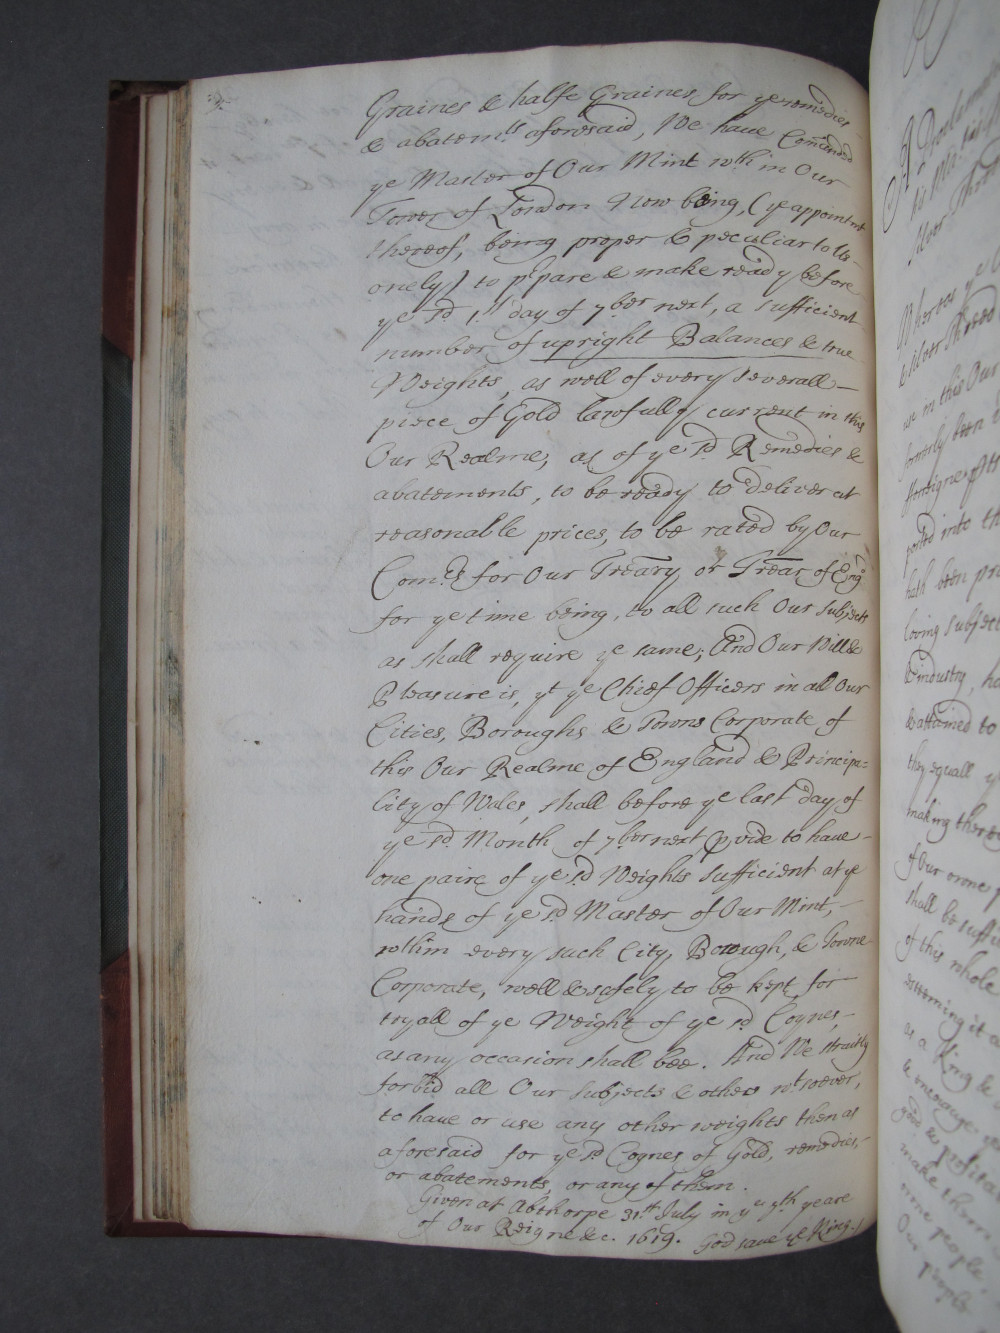 Graines & halfe Graines for ye remedies
& abatemts aforesaid, We have Comanded
ye Master of Our Mint wthin Our
Tower of London Now being, (ye appointmt
thereof, being proper & peculiar to Us
onely) to pᵉpare & make ready before
ye sd 1st day of 7ber next, a sufficient
number of upright Balances & true
Weights, as well of every severall
piece of Gold lawfully current in this
Our Realme, as of ye sd Remedies &
abatements, to be ready to deliver at
reasonable prices, to be rated by Our
Comrs for Our Treary or Trear of Engd
for ye time being, to all such Our Subjects
as shall require ye same; And Our Will &
Pleasure is, yt ye Chief Officers in all Our
Cities, Boroughs & Towns Corporate of
this Our Realme of England & Principa=
lity of Wales, shall before ye last day of
ye sd Month of 7ber next pvide to have
one paire of ye sd Weights sufficient at ye
hands of ye sd Master of Our Mint,
wthin every such City, Borough, & Towne
Corporate, well & safely to be kept for
tryall of ye Weight of ye sd Coynes,
as any occasion shall bee. And We straitly
forbid all Our Subjects & others wtsoever,
to have or use any other weights then as
aforesaid for ye sd Coynes of Gold, remedies,
or abatements, or any of them.
Given at Abthorpe 31th July in ye yeare
of Our Reigne &c. 1619. God save ye King.
A Proclam
Silver Thre
Whereas ye
& Silver Thread
use in this Our
formerly been
ported into th
hath been pra
loving subject
industry, ha
& attained to
they equall ye
making thereof
of Our owne
shall be suffi
of this whole
esteeming it a
as a King &
& encourage
good & profita
make them
owne people
Our people